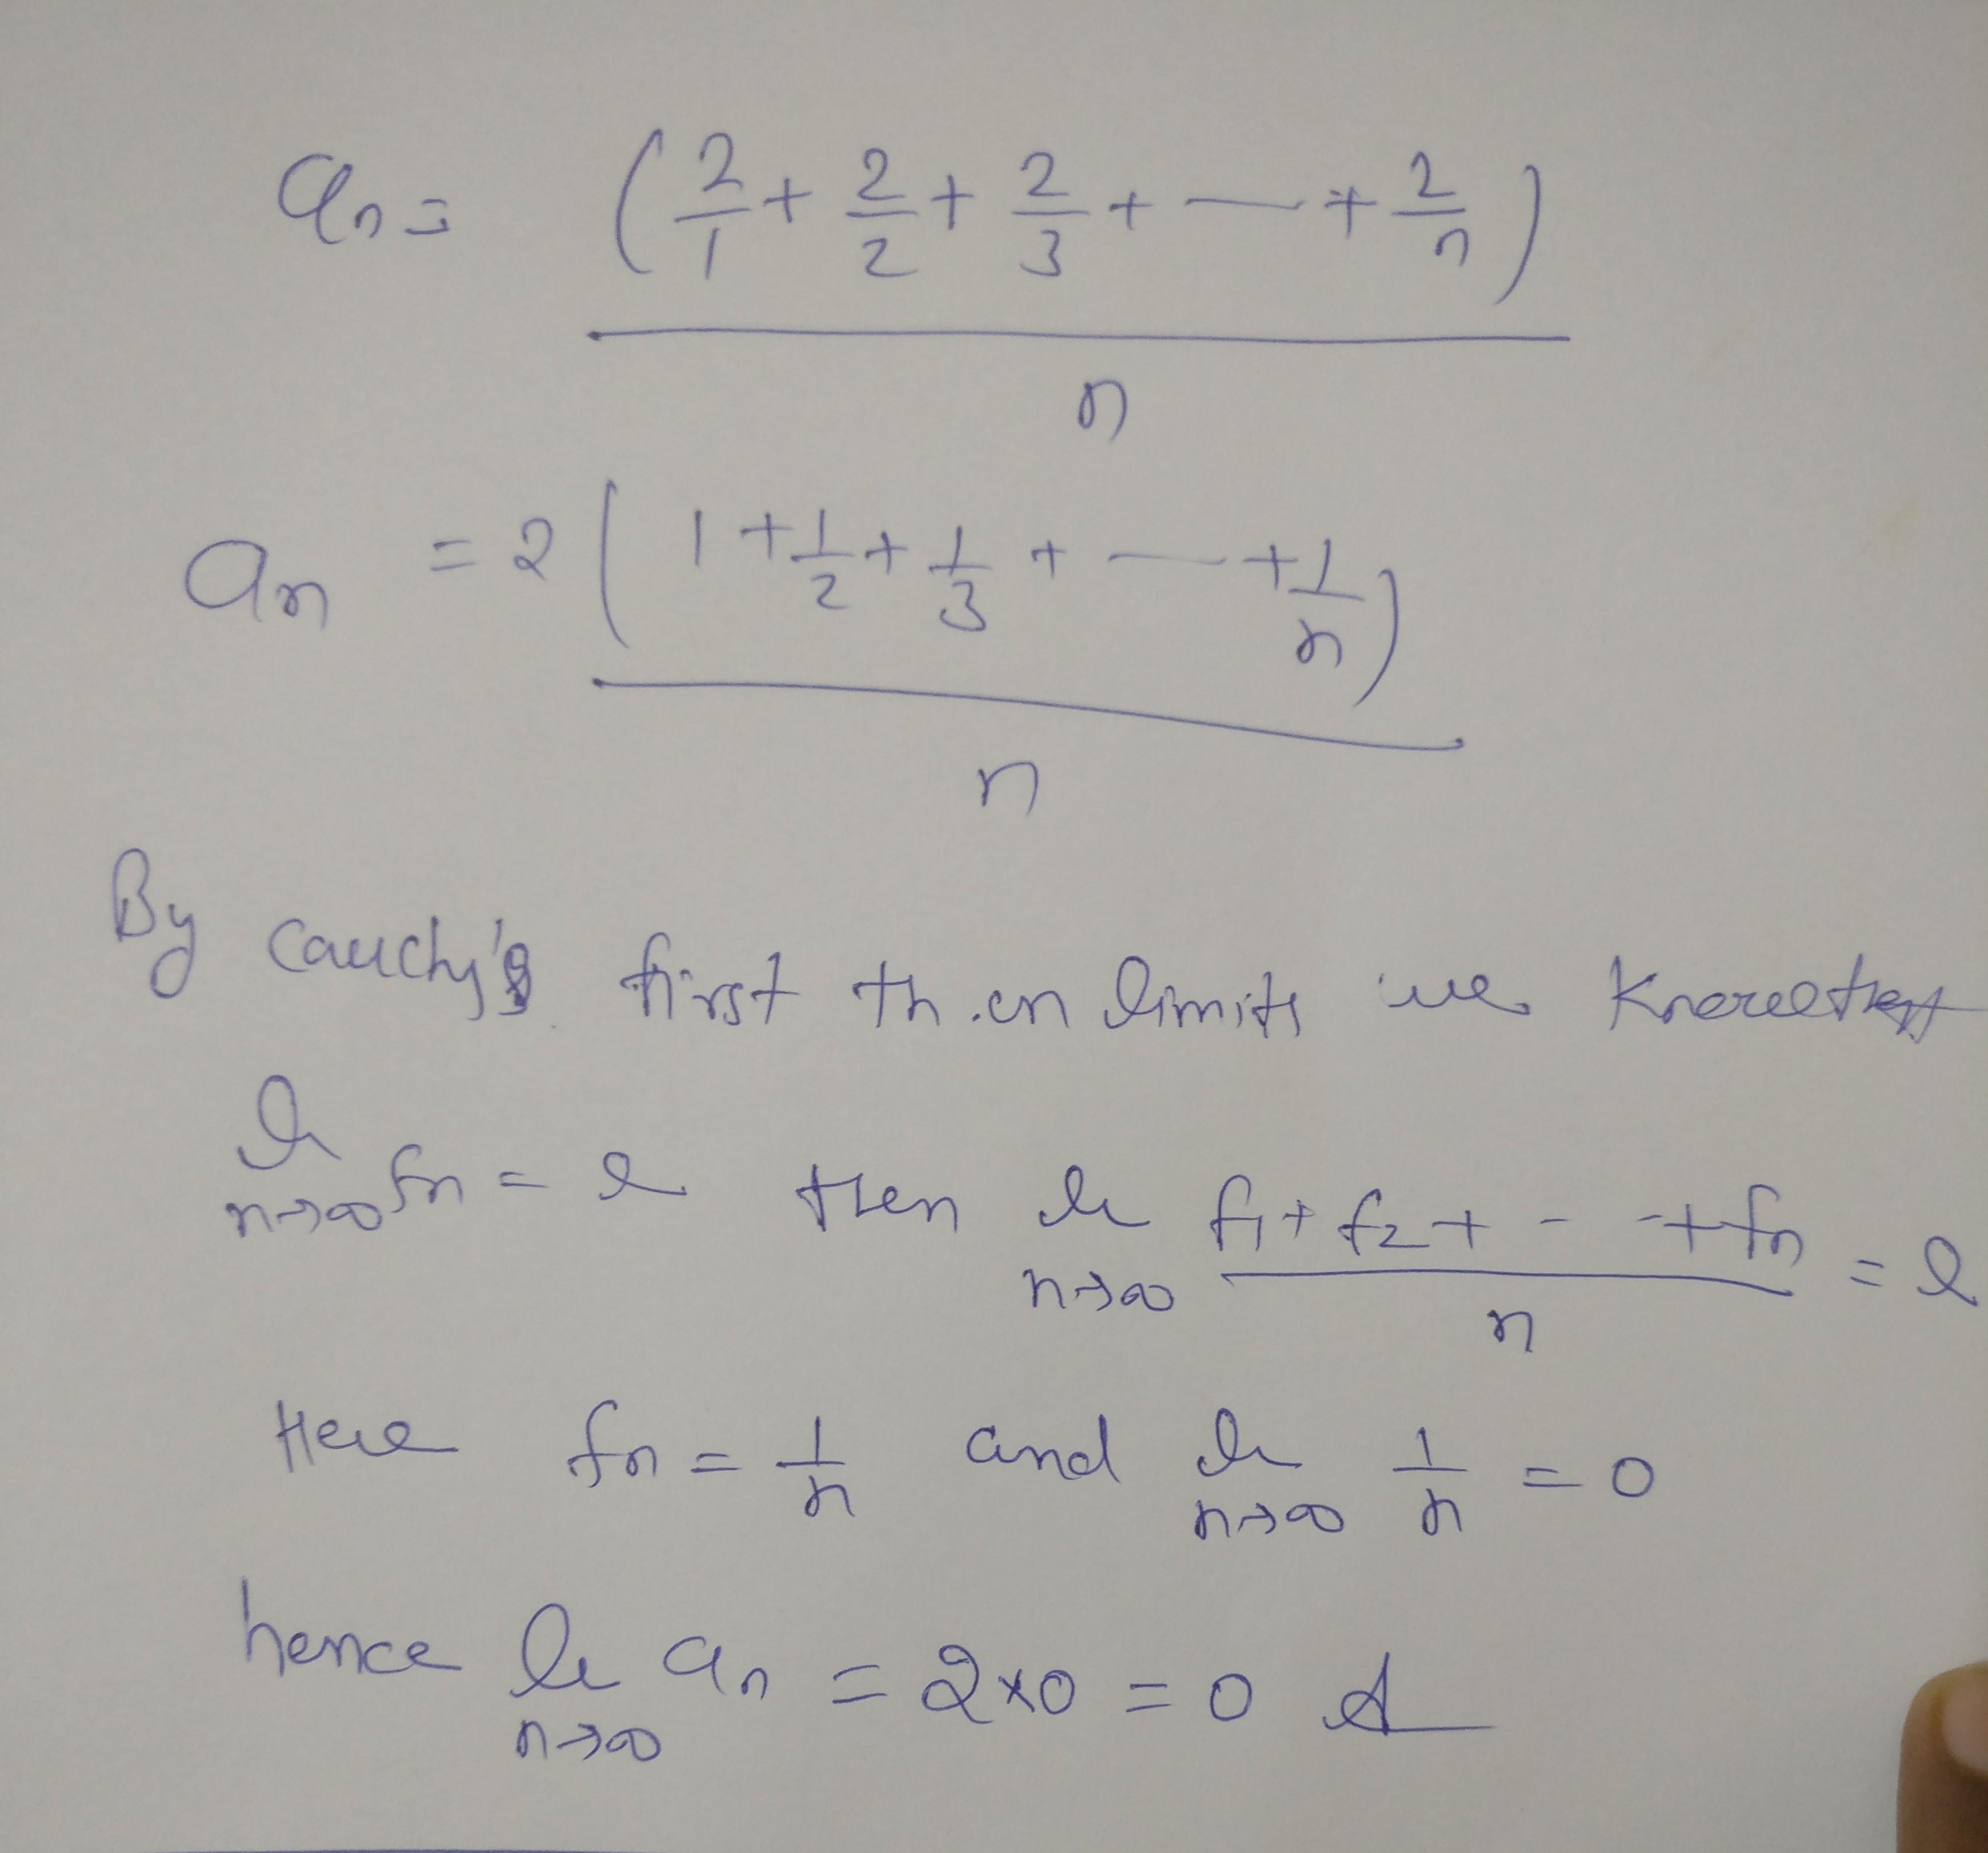 an = (2/1 + 2/2 + 2/3 + — + 2/n) / n
an = 2 (1 + 1/2 + 1/3 + — + 1/n) / n
By Cauchy's first th. on limits we know that
lim n→∞ fn = l then lim n→∞ (f1 + f2 + - - + fn) / n = l
Here fn = 1/n and lim n→∞ 1/n = 0
hence lim n→∞ an = 2×0 = 0